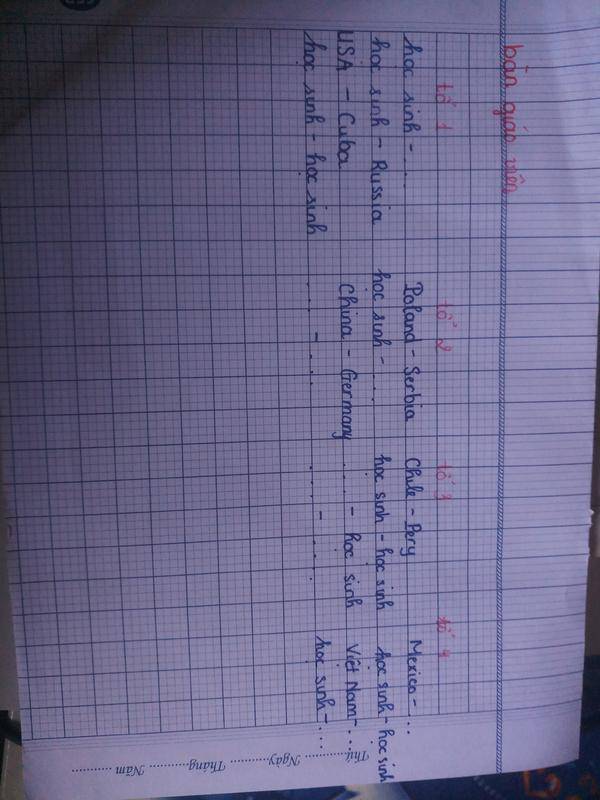 bàn giáo viên
tổ 1 tổ 2 tổ 3 tổ 4
học sinh - ... Poland - Serbia Chile - Pery Mexico - ...
học sinh - Russia học sinh - ... học sinh - học sinh học sinh - học sinh
USA - Cuba China - Germany ... - học sinh Việt Nam - ...
học sinh - học sinh ... - ... ... - ... học sinh - ...
Thứ ............ Ngày ............ Tháng ............ Năm ............